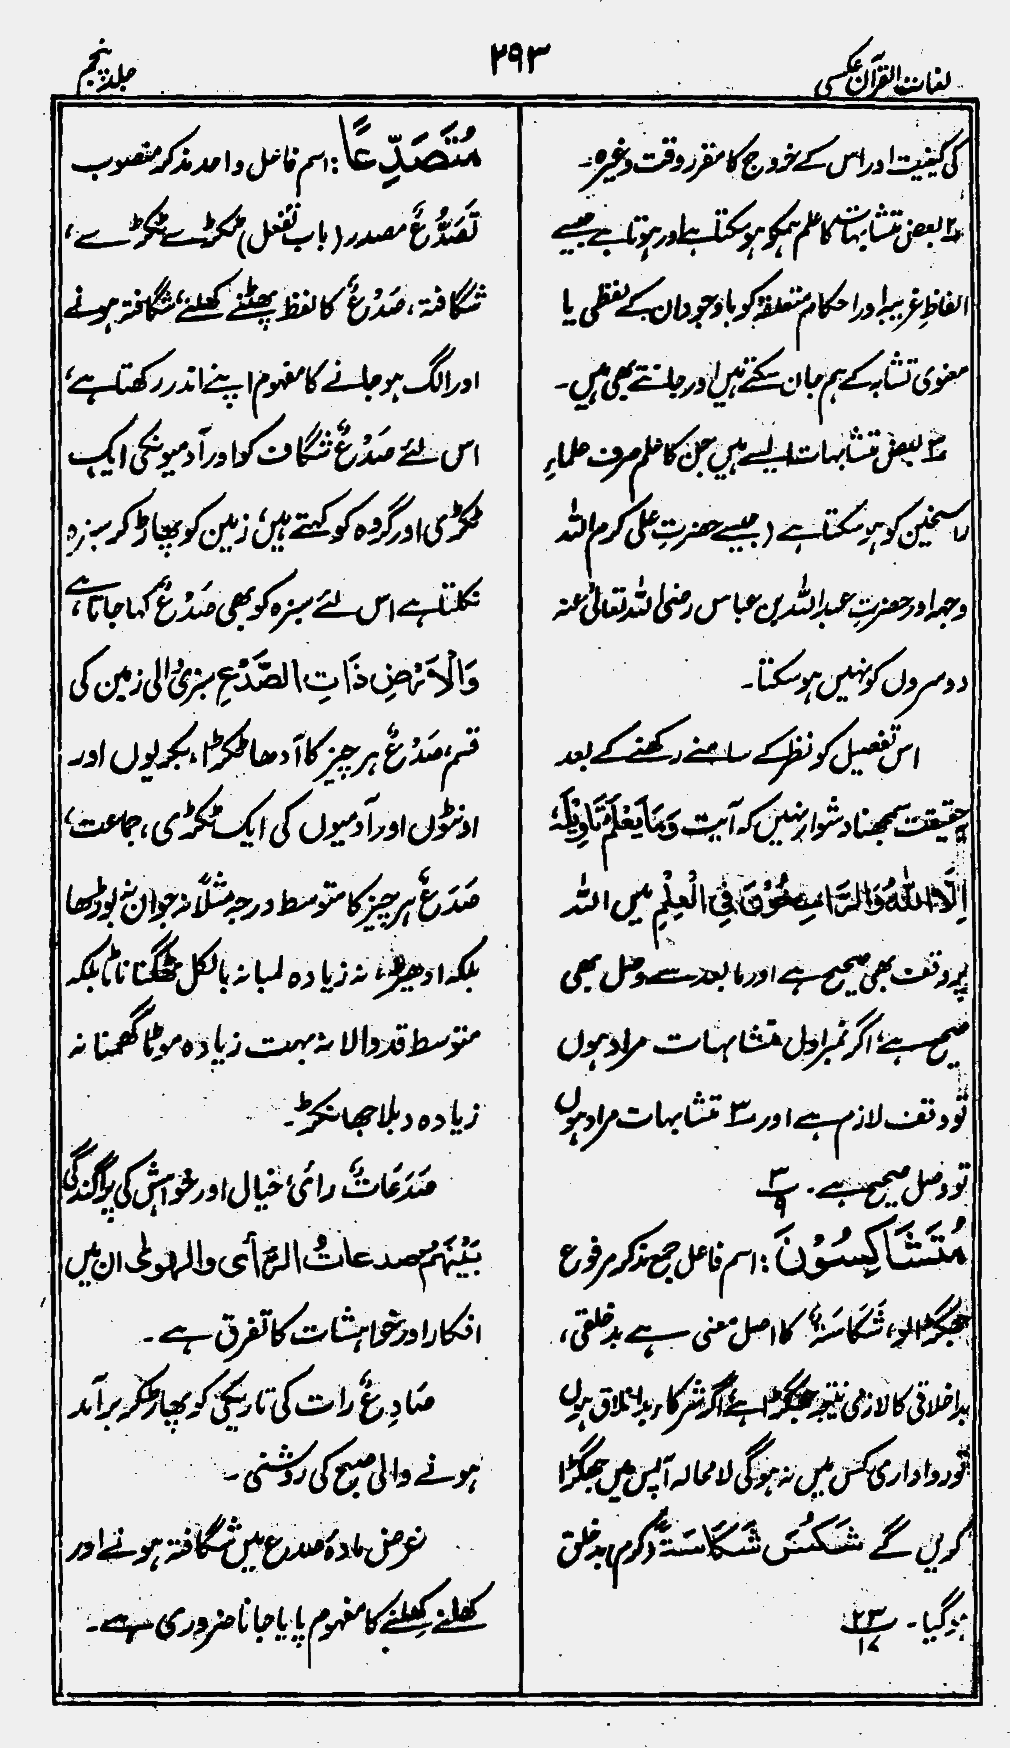 لغات القرآن عکسی
۲۹۳
جلد پنجم
کی کیفیت اور اس کے خروج کا مقرر وقت وغیرہ۔
۲ بعض متشابہات کا علم ہمکو ہو سکتا ہے اور ہوتا ہے جیسے
الفاظِ غریبہ اور احکام متعلقہ کو باوجود ان کے لفظی یا
معنوی تشابہ کے ہم جان سکتے ہیں اور جانتے بھی ہیں۔
۳ بعض متشابہات ایسے ہیں جن کا علم صرف علماءِ
راسخین کو ہو سکتا ہے (جیسے حضرتِ علی کرم اللہ
وجہہ اور حضرتِ عبداللہ بن عباس رضی اللہ تعالیٰ عنہ
دوسروں کو نہیں ہو سکتا۔
اس تفصیل کو نظر کے سامنے رکھنے کے بعد
حقیقت سمجھنا دشوار نہیں کہ آیت وَمَا يَعْلَمُ تَاْوِيْلَهٗ
اِلَّا اللّٰهُ وَالرَّاسِخُوْنَ فِي الْعِلْمِ میں اللہ
پر وقف بھی صحیح ہے اور مابعد سے وصل بھی
صحیح ہے، اگر نمبر اول متشابہات مراد ہوں
تو وقف لازم ہے اور ۳ متشابہات مراد ہوں
تو وصل صحیح ہے۔ ۳/۹
مُتَشَاكِسُوْنَ : اسم فاعل جمع مذکر مرفوع
جھگڑالو، شَکَاسَۃٌ کا اصل معنی ہے بدخلقی،
بداخلاقی کا لازمی نتیجہ جھگڑا ہے اگر شرکاء بداخلاق ہوں
تو رواداری کس میں نہ ہوگی لامحالہ آپس میں جھگڑا
کریں گے شَکُسَ شَکَاسَۃً (کرم) بدخلق
ہو گیا۔ ۲۳/۱۷
مُتَصَدِّعًا : اسم فاعل واحد مذکر منصوب
تَصَدُّعٌ مصدر (باب تفعل) ٹکڑے ٹکڑے سے،
شگافتہ، صَدْعٌ کا لفظ پھٹنے کھلنے، شگافتہ ہونے
اور الگ ہو جانے کا مفہوم اپنے اندر رکھتا ہے،
اس لئے صَدْعٌ شگاف کو اور آدمیونکی ایک
ٹکڑی اور گروہ کو کہتے ہیں، زمین کو پھاڑ کر سبزہ
نکلتا ہے اس لئے سبزہ کو بھی صَدْعٌ کہا جاتا ہے،
وَالْاَرْضِ ذَاتِ الصَّدْعِ سبزی والی زمین کی
قسم، صَدْعٌ ہر چیز کا آدھا ٹکڑا، بکریوں اور
اونٹوں اور آدمیوں کی ایک ٹکڑی، جماعت،
صَدَعٌ ہر چیز کا متوسط درجہ مثلاً نہ جوان نہ بوڑھا
بلکہ ادھیڑ، نہ زیادہ لمبا نہ بالکل ٹھگنا ناٹا بلکہ
متوسط قد والا نہ بہت زیادہ موٹا گھمنا نہ
زیادہ دبلا جھانکڑ۔
صَدَعَاتٌ رائ خیال اور خواہش کی پراگندگی
بَيْنَهُمْ صدعاتُ الرَّأی والھوٰی ان میں
افکار اور خواہشات کا تفرق ہے۔
صَادِعٌ رات کی تاریکی کو پھاڑ کر برآمد
ہونے والی صبح کی روشنی۔
غرض مادۂ صدع میں شگافتہ ہونے اور
کھلنے کِھلنے کا مفہوم پایا جانا ضروری ہے۔